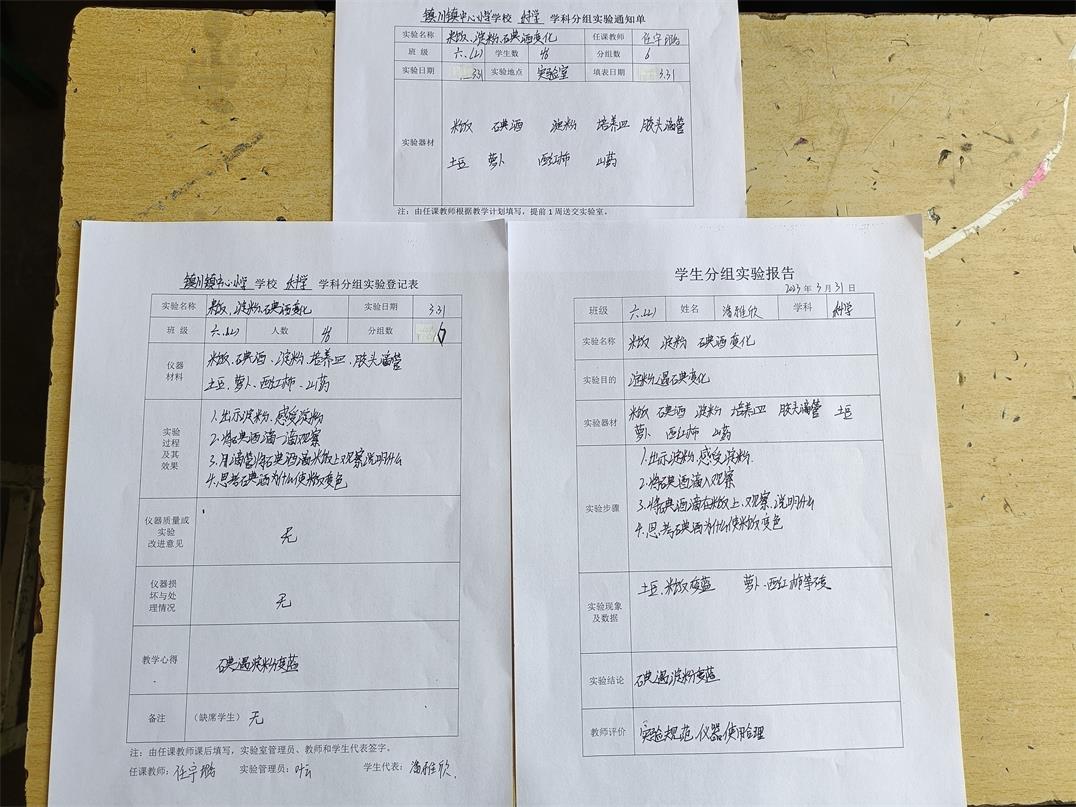 镇川镇中心小学学校 科学 学科分组实验通知单
实验名称 米饭、淀粉、碘酒变化 任课教师 任宇璐
班 级 六.(2) 学生数 48 分组数 6
实验日期 3.31 实验地点 实验室 填表日期 3.31
实验器材
米饭 碘酒 淀粉 培养皿 胶头滴管
土豆 萝卜 西红柿 山药
注：由任课教师根据教学计划填写，提前1周送交实验室。
镇川镇中心小学 学校 科学 学科分组实验登记表
实验名称 米饭、淀粉、碘酒变化 实验日期 3.31
班 级 六.(2) 人数 48 分组数 6
仪器
材料
米饭、碘酒、淀粉、培养皿、胶头滴管
土豆、萝卜、西红柿、山药
实验
过程
及其
效果
1.出示淀粉、感受淀粉
2.将碘酒滴一滴观察
3.用滴管将碘酒滴米饭上观察说明什么
4.思考碘酒为什么使米饭变色
仪器质量或
实验
改进意见
无
仪器损
坏与处
理情况
无
教学心得 碘遇淀粉变蓝
备注 （缺席学生）无
注：由任课教师课后填写，实验室管理员、教师和学生代表签字。
任课教师：任宇璐 实验管理员：叶云 学生代表：潘雅欣.
学生分组实验报告
2023 年 3 月 31 日
班级 六.(2) 姓名 潘雅欣 学科 科学
实验名称 米饭 淀粉 碘酒变化
实验目的 淀粉遇碘变化
实验器材
米饭 碘酒 淀粉 培养皿 胶头滴管 土豆
萝卜 西红柿 山药
实验步骤
1.出示淀粉,感受淀粉.
2.将碘酒滴入观察
3.将碘酒滴在米饭上、观察、说明什么
4.思考碘酒为什么使米饭变色
实验现象
及数据
土豆、米饭变蓝 萝卜、西红柿等不变
实验结论 碘遇淀粉变蓝
教师评价 实验规范,仪器使用合理